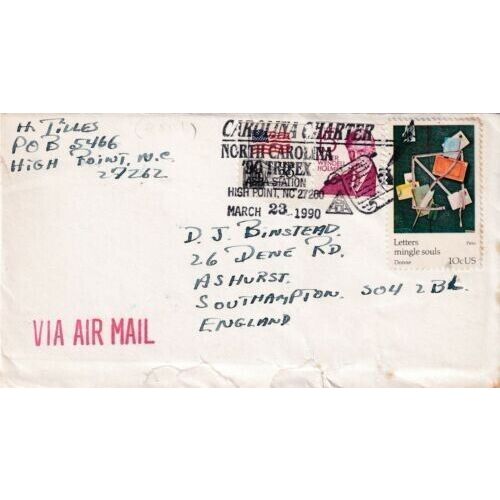 H. TILLES
POB 5466
HIGH POINT, N.C.
27262
CAROLINA CHARTER
NORTH CAROLINA
'90 TRIPEX
STATION
HIGH POINT, NC 27260
MARCH 23 1990
WENDELL
HOLMES
Letters
mingle souls
Donne
Peto
10c US
D. J. BINSTEAD.
26 DENE RD.
ASHURST.
SOUTHAMPTON. SO4 2BL.
ENGLAND
VIA AIR MAIL